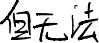 但无法